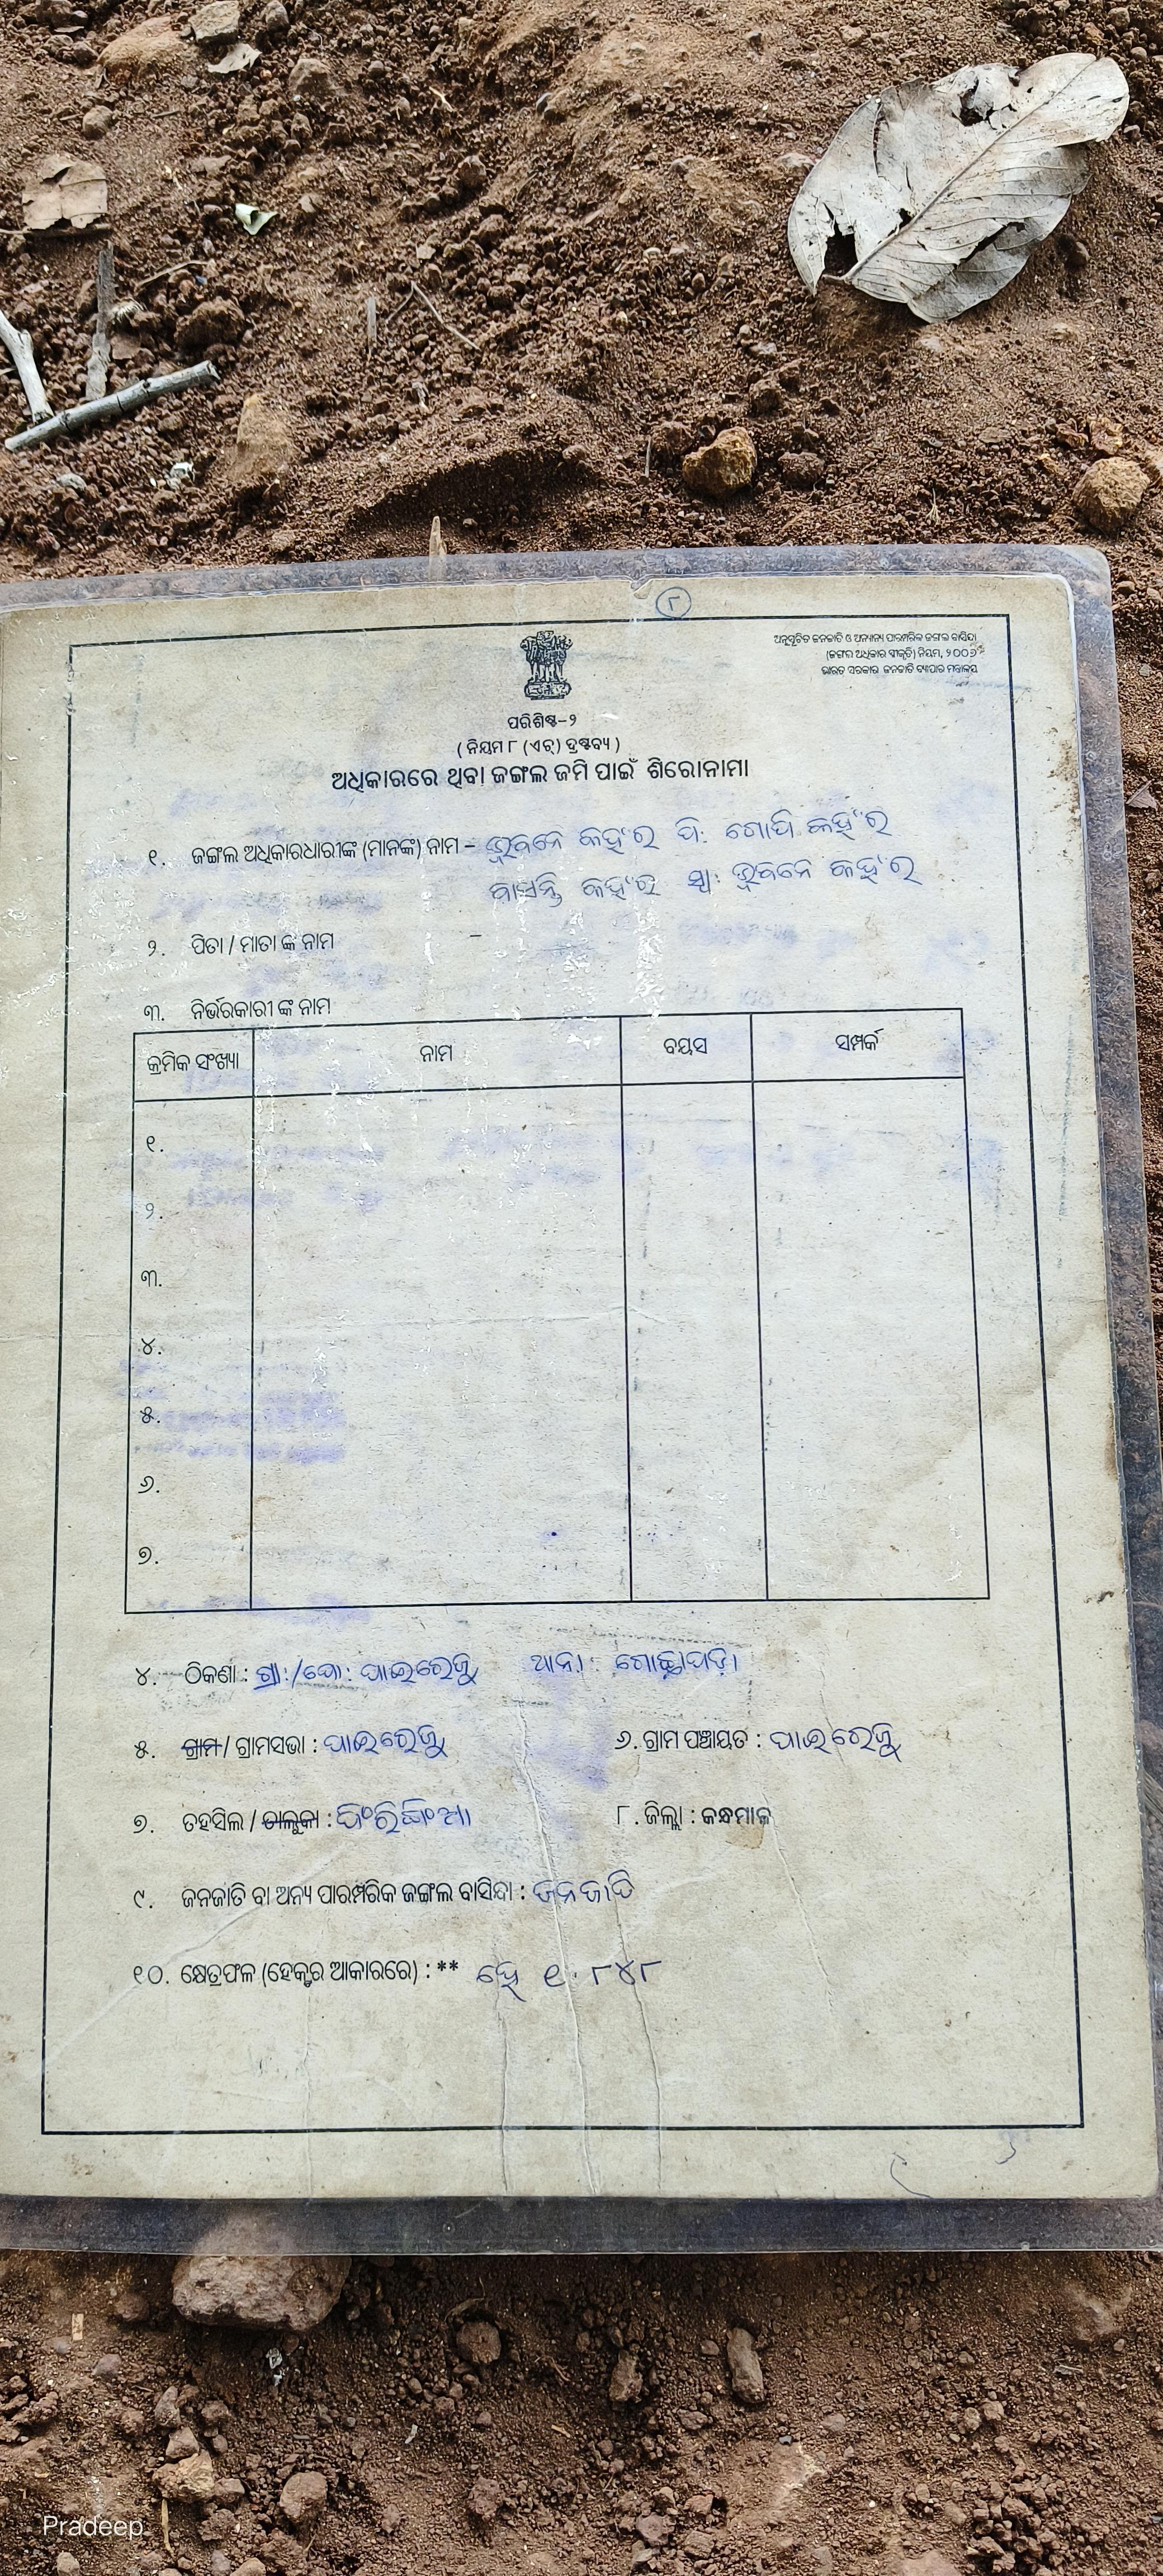 ୮
ଅନୁସୂଚିତ ଜନଜାତି ଓ ଅନ୍ୟାନ୍ୟ ପାରମ୍ପରିକ ଜଙ୍ଗଲ ବାସିନ୍ଦା
(ଜଙ୍ଗଲ ଅଧିକାର ସ୍ୱୀକୃତି) ନିୟମ, ୨୦୦୭
ଭାରତ ସରକାର ଜନଜାତି ବ୍ୟାପାର ମନ୍ତ୍ରାଳୟ
ପରିଶିଷ୍ଟ-୨
( ନିୟମ ୮ (ଏଚ୍) ଦ୍ରଷ୍ଟବ୍ୟ )
ଅଧିକାରରେ ଥିବା ଜଙ୍ଗଲ ଜମି ପାଇଁ ଶିରୋନାମା
୧. ଜଙ୍ଗଲ ଅଧିକାରଧାରୀଙ୍କ (ମାନଙ୍କ) ନାମ - ଭୁବନେ କହଁର ପି: ଗୋପି କହଁର
ବାସନ୍ତି କହଁର ସ୍ୱା: ଭୁବନେ କହଁର
୨. ପିତା / ମାତା ଙ୍କ ନାମ -
୩. ନିର୍ଭରକାରୀ ଙ୍କ ନାମ
କ୍ରମିକ ସଂଖ୍ୟା ନାମ ବୟସ ସମ୍ପର୍କ
୧.
୨.
୩.
୪.
୫.
୬.
୭.
୪. ଠିକଣା : ଗ୍ରା:/ପୋ: ପାଇରେଜୁ ଥାନା: ଗୋଚ୍ଛାପଡ଼ା
୫. ଗ୍ରାମ / ଗ୍ରାମସଭା : ପାଇରେଜୁ ୬. ଗ୍ରାମ ପଞ୍ଚାୟତ : ପାଇରେଜୁ
୭. ତହସିଲ / ତାଲୁକା : ଫିରିଙ୍ଗିଆ ୮. ଜିଲ୍ଲା : କନ୍ଧମାଳ
୯. ଜନଜାତି ବା ଅନ୍ୟ ପାରମ୍ପରିକ ଜଙ୍ଗଲ ବାସିନ୍ଦା : ଜନଜାତି
୧୦. କ୍ଷେତ୍ରଫଳ (ହେକ୍ଟର ଆକାରରେ) : ** ହେ ୧.୮୪୮
Pradeep